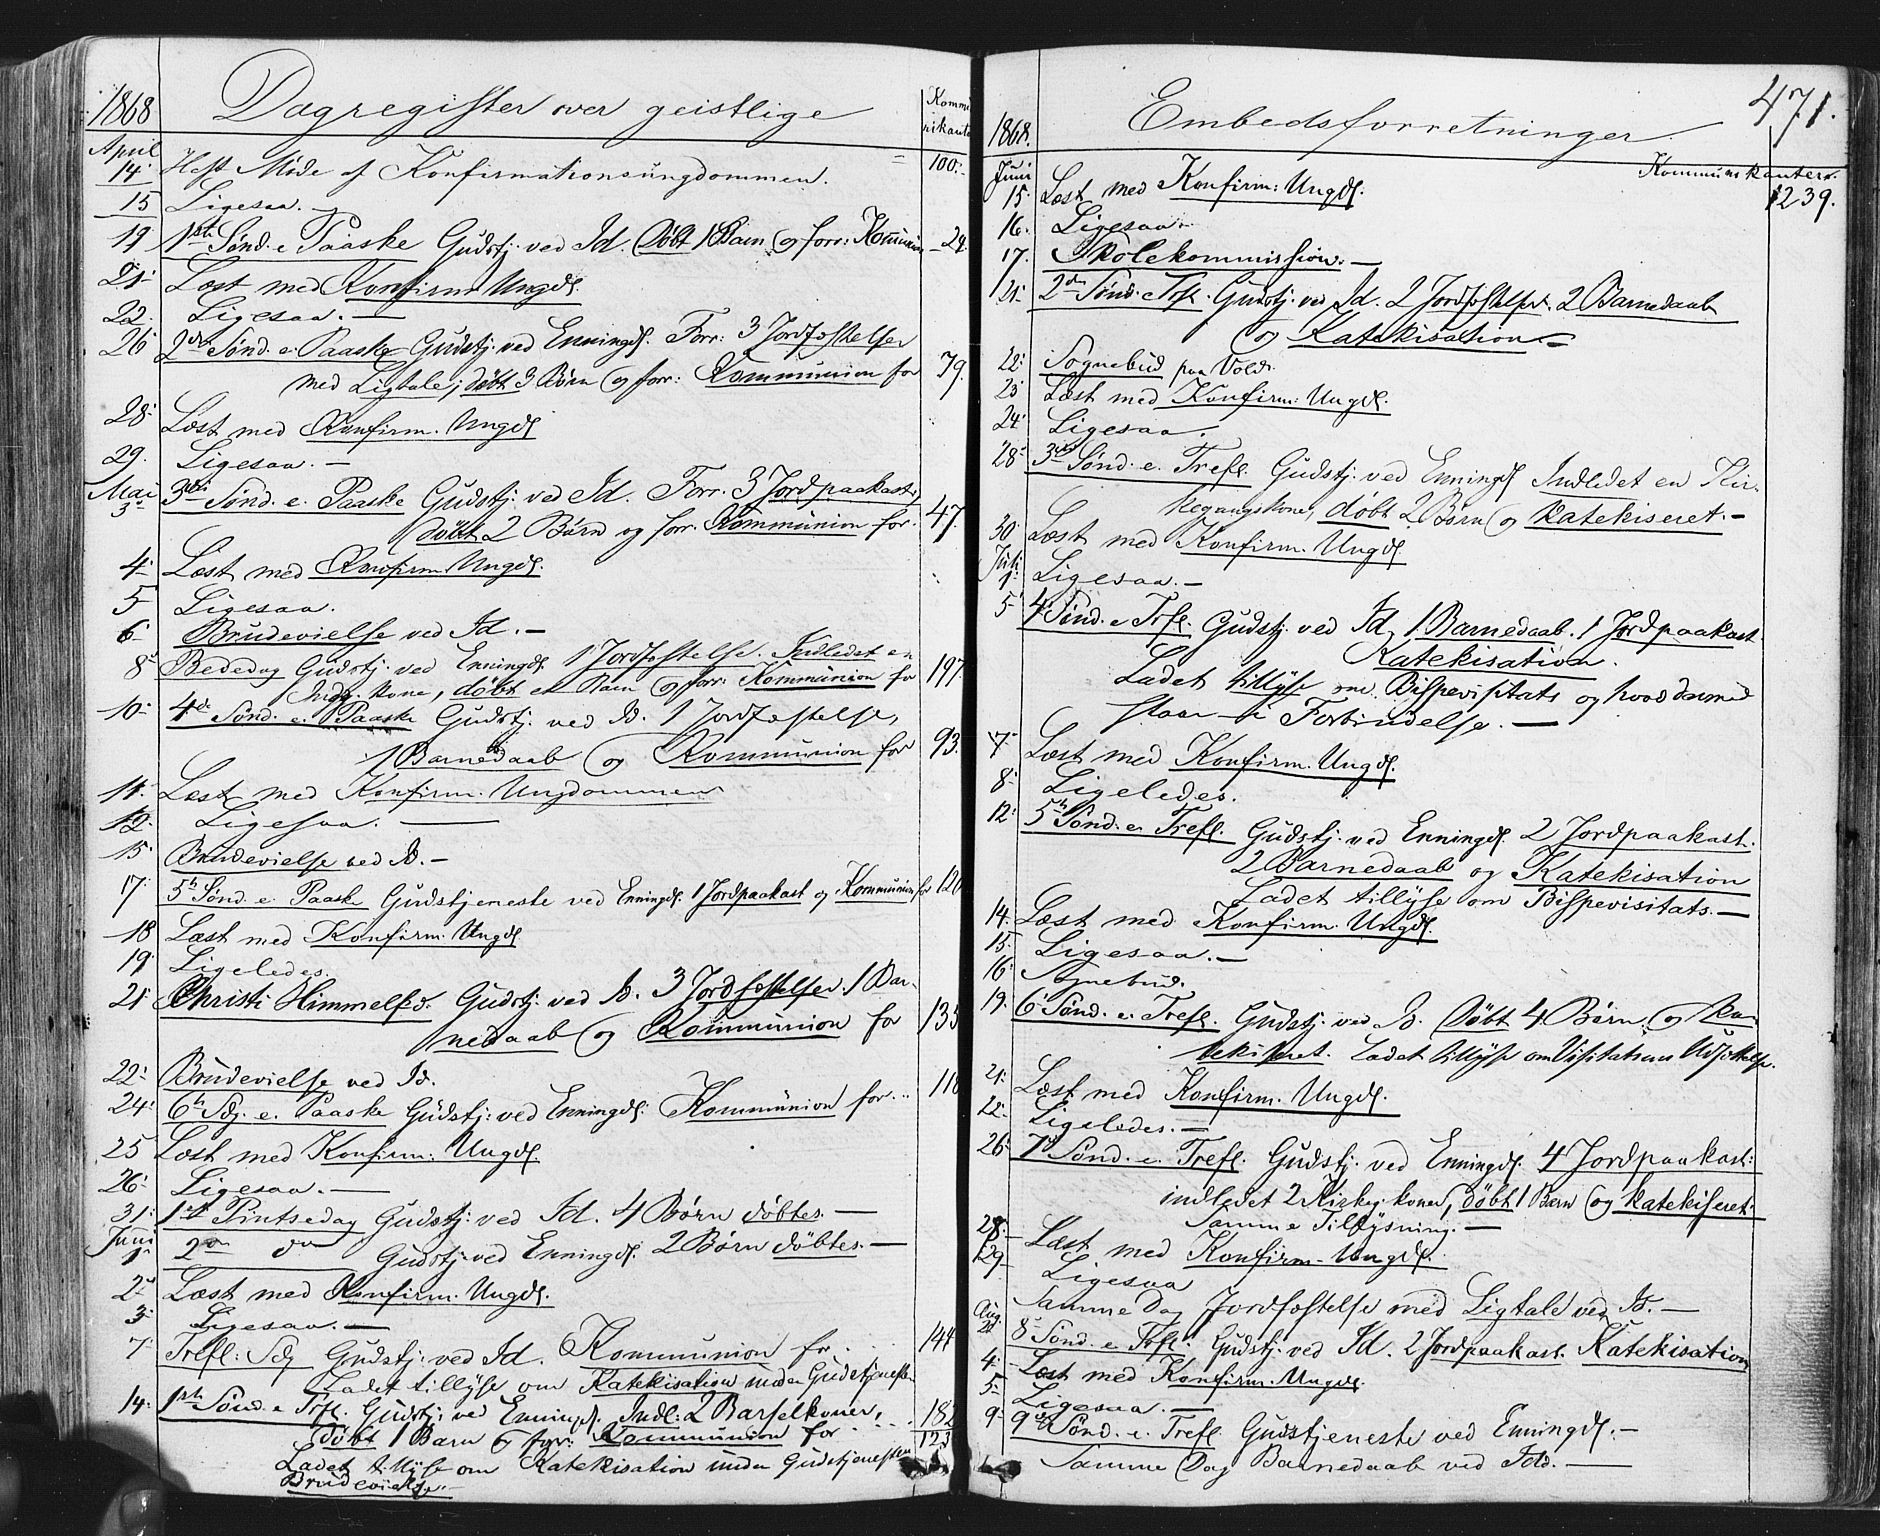 1868 Dagregister over geistlige Kommu
nikanter
April
14. Holdt Møde af Konfirmationsungdommen. = 100.-
15 Ligesaa. -
19 1ste Sønd. e. Paaske Gudstj. ved Id. Døbt 1 Barn og forr: Kommunion - 24.
21. Læst med Konfirm. Ungd.
22. Ligesaa. -
26. 2den Sønd. e. Paaske Gudstj. ved Enningd. Forr: 3 Jordfæstelser
med Ligtale; døbt 3 Børn og forr: Kommunion for 79.
28. Læst med Konfirm. Ungd.
29. Ligesaa. -
Mai
3. 3die Sønd. e. Paaske Gudstj. ved Id. Forr. 3 Jordpaakast,
døbt 2 Børn og forr. Kommunion for. 47.
4. Læst med Konfirm. Ungd.
5 Ligesaa.
6 Brudevielse ved Id. -
8. Bededag Gudstj. ved Enningd. 1 Jordfæstelse. Indledet en
kone, døbt et Barn og forr: Kommunion for 197.
10. 4de Sønd. e. Paaske Gudstj. ved Id. 1 Jordfæstelse,
1 Barnedaab og Kommunion for 93.
11. Læst med Konfirm. Ungdommen
12. Ligesaa. -
15 Brudevielse ved Id. -
17. 5te Sønd. e. Paaske Gudstjeneste ved Enningd. 1 Jordpaakast og Kommunion for 120
18 Læst med Konfirm. Ungd.
19. Ligeledes.
21. Christi Himmelfd. Gudstj. ved Id. 3 Jordfæstelser. 1 Bar-
nedaab og Kommunion for 135
22. Brudevielse ved Id.
24. 6te Sdg. e. Paaske Gudstj. ved Enningd. Kommunion for.. 118
25 Læst med Konfirm. Ungd.
26. Ligesaa. -
31. 1ste Pintsedag Gudstj. ved Id. 4 Børn døbtes. -
Juni
1. 2den do Gudstj. ved Enningd. 2 Børn døbtes. -
2. Læst med Konfirm. Ungd.
3. Ligesaa. -
7. Trefl: Sdg Gudstj. ved Id. Kommunion for. . 144
Ladet tillyse om Katekisation under Gudstjenesten
14. 1ste Sønd. e. Trefl. Gudstj. ved Enningd. Indl: 2 Barselkoner, 182
døbt 1 Barn & forr: Kommunion for. 123
Ladet tillyse om Katekisation under Gudstjenesten
Brudevielse. -
471.
1868. Embedsforretninger.
Juni Kommunikanter.
15. Læst med Konfirm: Ungd. 1239.
16. Ligesaa. -
17. Skolekommission. -
21. 2den Sønd. e. Trefl. Gudstj. ved Id. 2 Jordfæstelser. 2 Barnedaab
og Katekisation -
22. Sognebud paa Vold.
23 Læst med Konfirm: Ungd.
24. Ligesaa.
28. 3die Sønd. e. Trefl. Gudstj. ved Enningd Indledet en Kir-
kegangskone, døbt 2 Børn og katekiseret. -
30. Læst med Konfirm. Ungd.
Juli
1. Ligesaa. -
5 4. Sønd. e. Trefl. Gudstj. ved Id, 1 Barnedaab. 1 Jordpaakast
Katekisation.
Ladet tillyse om Bispevisitats og hvad dermed
staar i Forbindelse. -
7. Læst med Konfirm. Ungd.
8. Ligeledes.
12. 5te Sønd. e. Trefl. Gudstj. ved Enningd. 2 Jordpaakast.
2 Barnedaab og Katekisation
Ladet tillyse om Bispevisitats. -
14. Læst med Konfirm. Ungd.
15. Ligesaa. -
16. Sognebud.
19. 6te Sønd. e. Trefl. Gudstj. ved Id. Døbt 4 Børn og Ka-
tekiseret. Ladet tillyse om Visitatsens Udsættelse.
21. Læst med Konfirm. Ungd.
22. Ligeledes. -
26. 7de Sønd. e. Trefl. Gudstj. ved Enningd. 4 Jordpaakast:
indledet 2 Kirkeg. koner, døbt 1 Barn og katekiseret.
Samme Tillysning. -
28. Læst med Konfirm. Ungd.
29. Ligesaa
Samme Dag Jordfæstelse med Ligtale ved Id. -
Aug.
2. 8de Sønd. e. Trefl. Gudstj. ved Id. 2 Jordpaakast. Katekisation
4. Læst med Konfirm. Ungd.
5. Ligesaa. -
9. 9de Sønd. e. Trefl. Gudstjeneste ved Enningd. -
Samme Dag Barnedaab ved Id. -